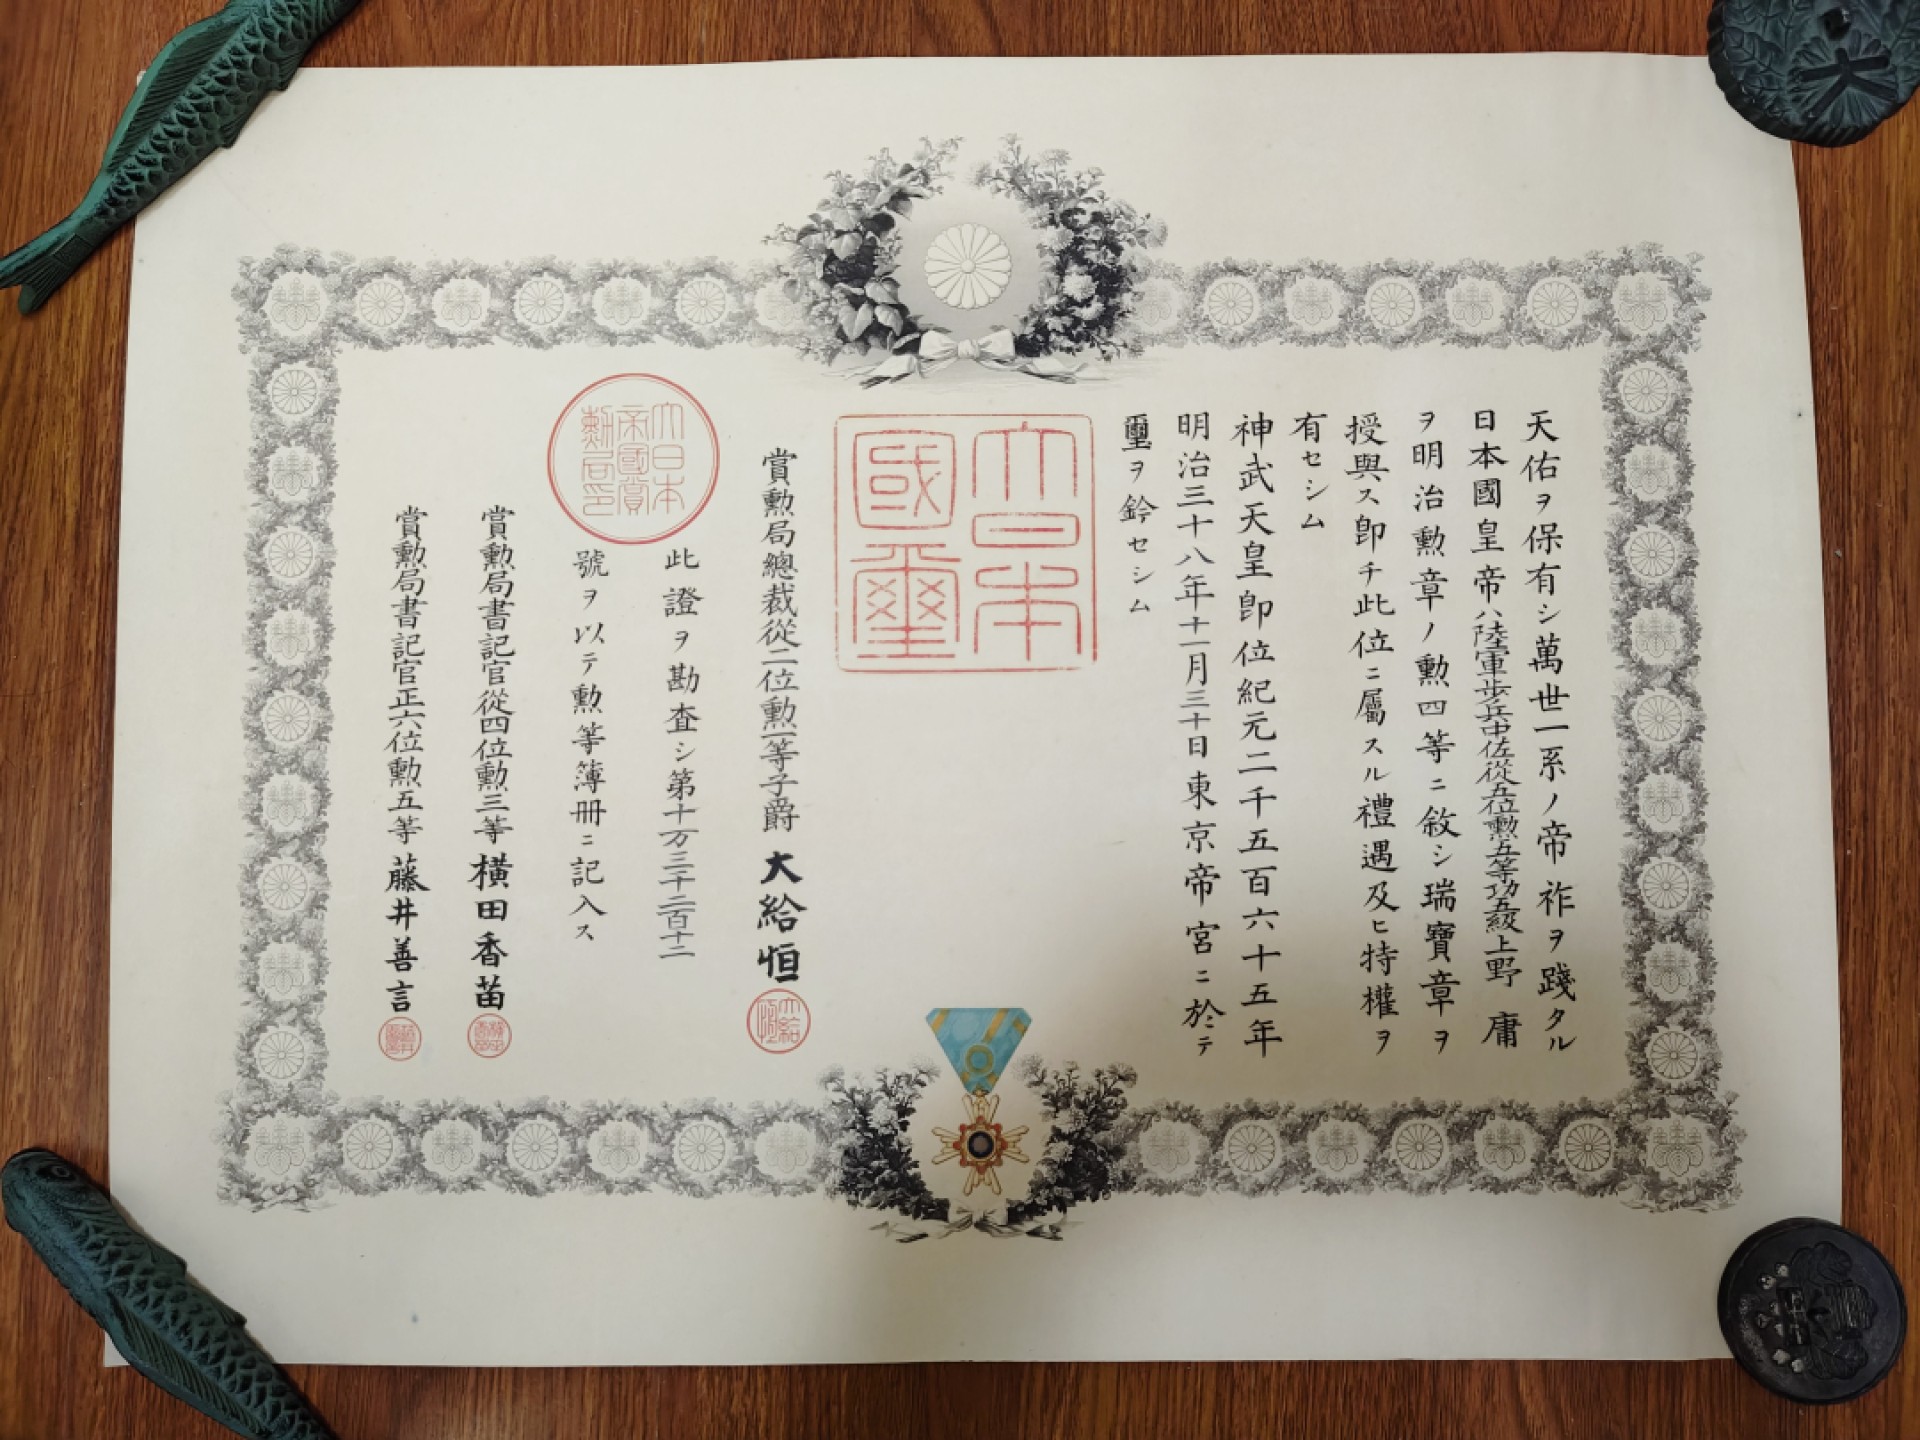 天佑ヲ保有シ萬世一系ノ帝祚ヲ踐タル
日本國皇帝ハ陸軍歩兵中佐從五位勲五等功五級上野庸
ヲ明治勲章ノ勲四等ニ敘シ瑞寶章ヲ
授與ス卽チ此位ニ屬スル禮遇及ヒ特權ヲ
有セシム
神武天皇卽位紀元二千五百六十五年
明治三十八年十一月三十日東京帝宮ニ於テ
璽ヲ鈐セシム
大日本
國璽
賞勲局總裁從二位勲一等子爵大給恒
大給恒
大日本
帝國賞
勲局印
此證ヲ勘査シ第十万三千二百十二
號ヲ以テ勲等簿冊ニ記入ス
賞勲局書記官從四位勲三等横田香苗
賞勲局書記官正六位勲五等藤井善言